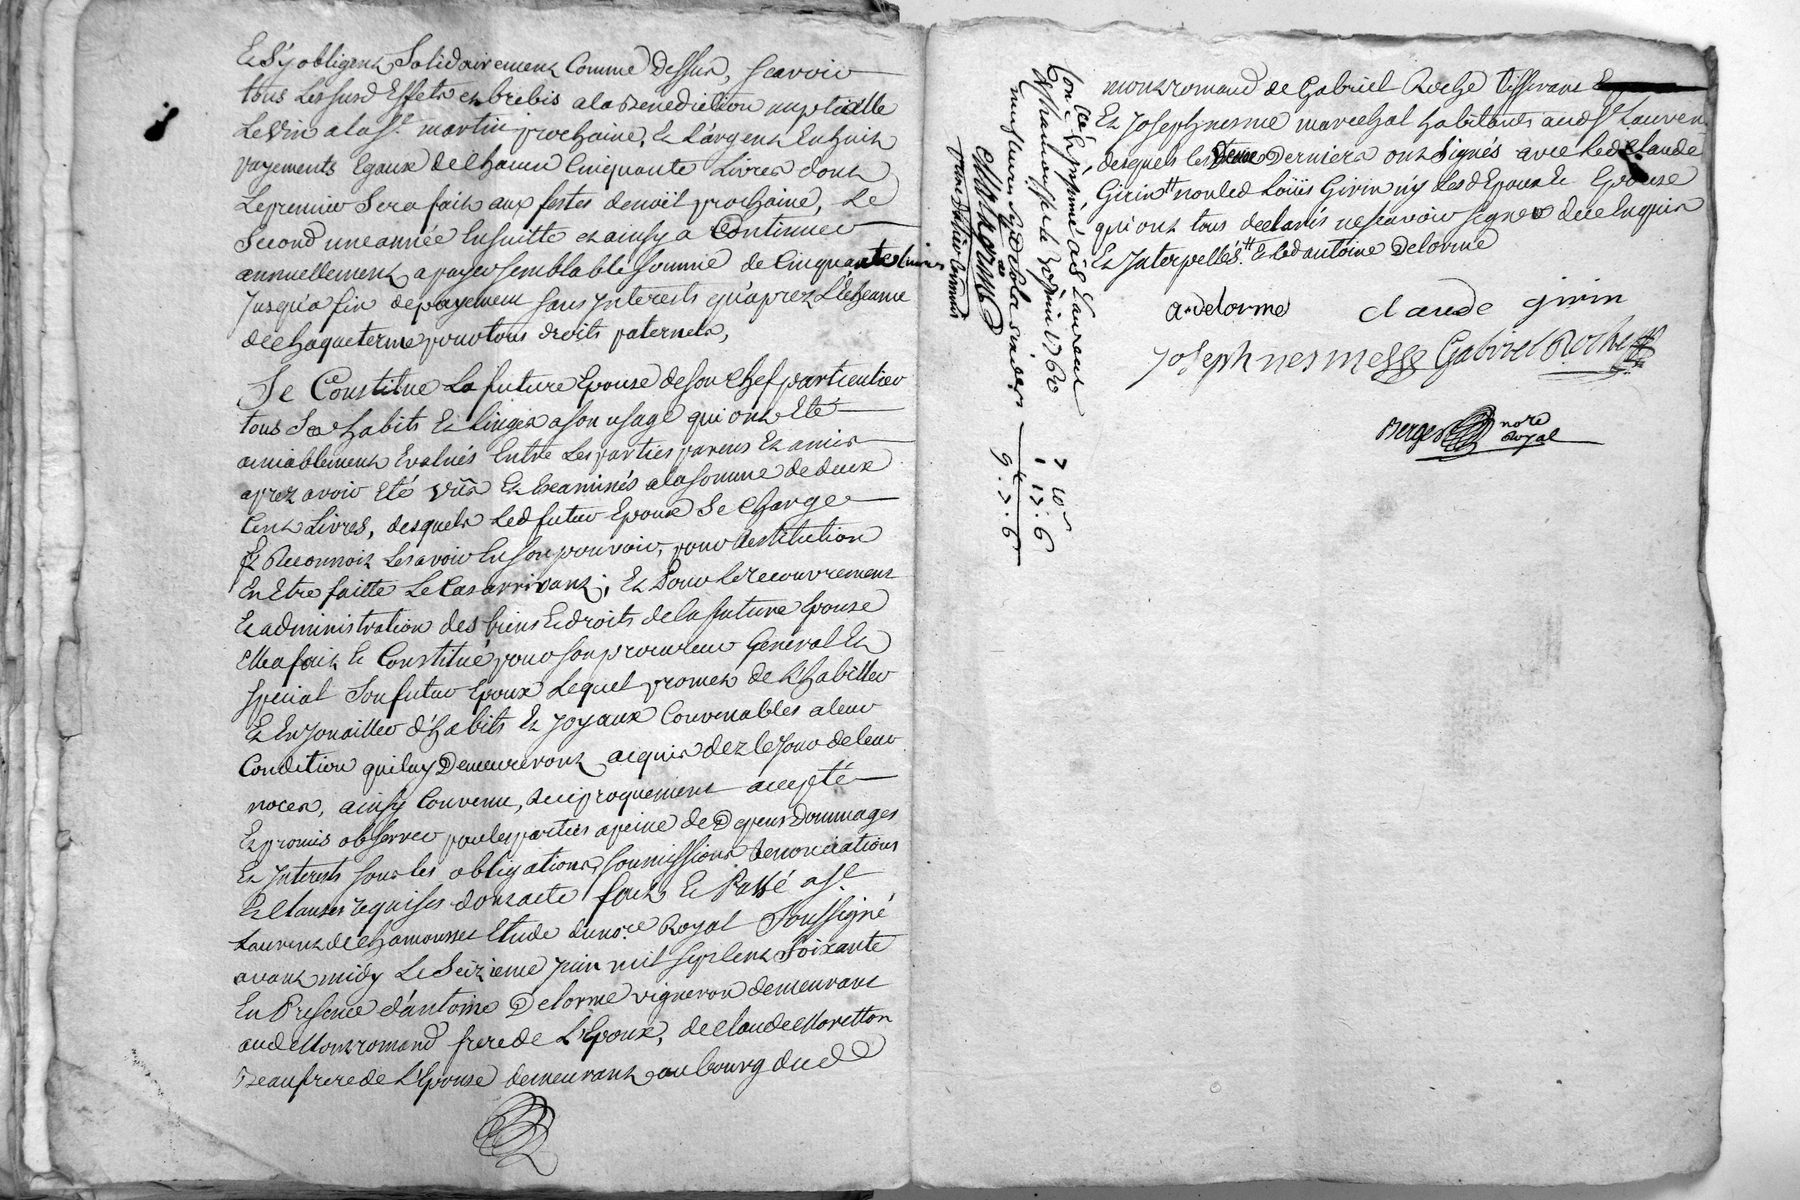 Et S'y obligent Solidairement Comme dessus, Scavoir
tous les susd Effets et brebis a la Benediction nuptialle
Le Vin a la St martin prochaine, Et L'argent En huit
payements Egaux de Chacun Cinquante Livres dont
Le premier Sera fait aux festes de noël prochaine, Le
Second une année Ensuitte et ainsy a Continuer
annuellement a payer semblable Somme de Cinquante Livres
Jusqu'a fin de payement sans Interests qu'aprez L'Echeance
de Chaque terme pour tous droits paternels,
Se Constitue La future Epouse de son Chef particulier
tous Ses habits Et Linges a son usage qui ont Eté
amiablement Evalués Entre Les parties parens Et amis
aprez avoir Eté Vûs Et Examinés a la somme de deux
Cent Livres, desquels Led futur Epoux Se Charge
Et Reconnoit Les avoir En son pouvoir, pour Restitution
En Etre faitte Le Cas arrivant; Et Pour Le recouvrement
Et administration des biens Et droits de la future Epouse
Elle a fait Et Constitué pour son procureur General Et
Special Son futur Epoux Lequel promet de L'habiller
Et Enjoüailler d'habits Et Joyaux Convenables a leur
Condition qui luy Demeureront acquis dez le Jour de leur
noces, ainsy Convenu, Reciproquement accepté
Et promis observer par les parties a peine de Depens Dommages
Et Interests sous les obligations, soumissions Renonciations
Et Clauses requises dont acte fait Et Passé a St
Laurent de Chamousset Etude du nore Royal Soussigné
avant midy Le Seizieme Juin mil sept Cent Soixante
En Presence d'antoine Delorme vigneron demeurant
aud Montromand frere de L'Epoux, de Claude Moretton
Beaufrere de L'Epouse demeurant au bourg dud
Conlé Et Insinué a St Laurent
de Chamousset le Juin 1760
7 10s
1 17: 6
9: 7: 6
montromand de Gabriel Roche Tisserant
Et Joseph nesme marechal habitants aud St Lauren
desquels les Deux Derniers ont Signés avec Led Claude
Girin # non led Loüis Girin n'y Lesd Epoux Et Epouse
qui ont tous declarés ne scavoir signer de ce Enquis
Et Interpellés. # Et led antoine Delorme
a. delorme claude girin
Joseph nesme Gabriel Roche
Berger nore
Royal